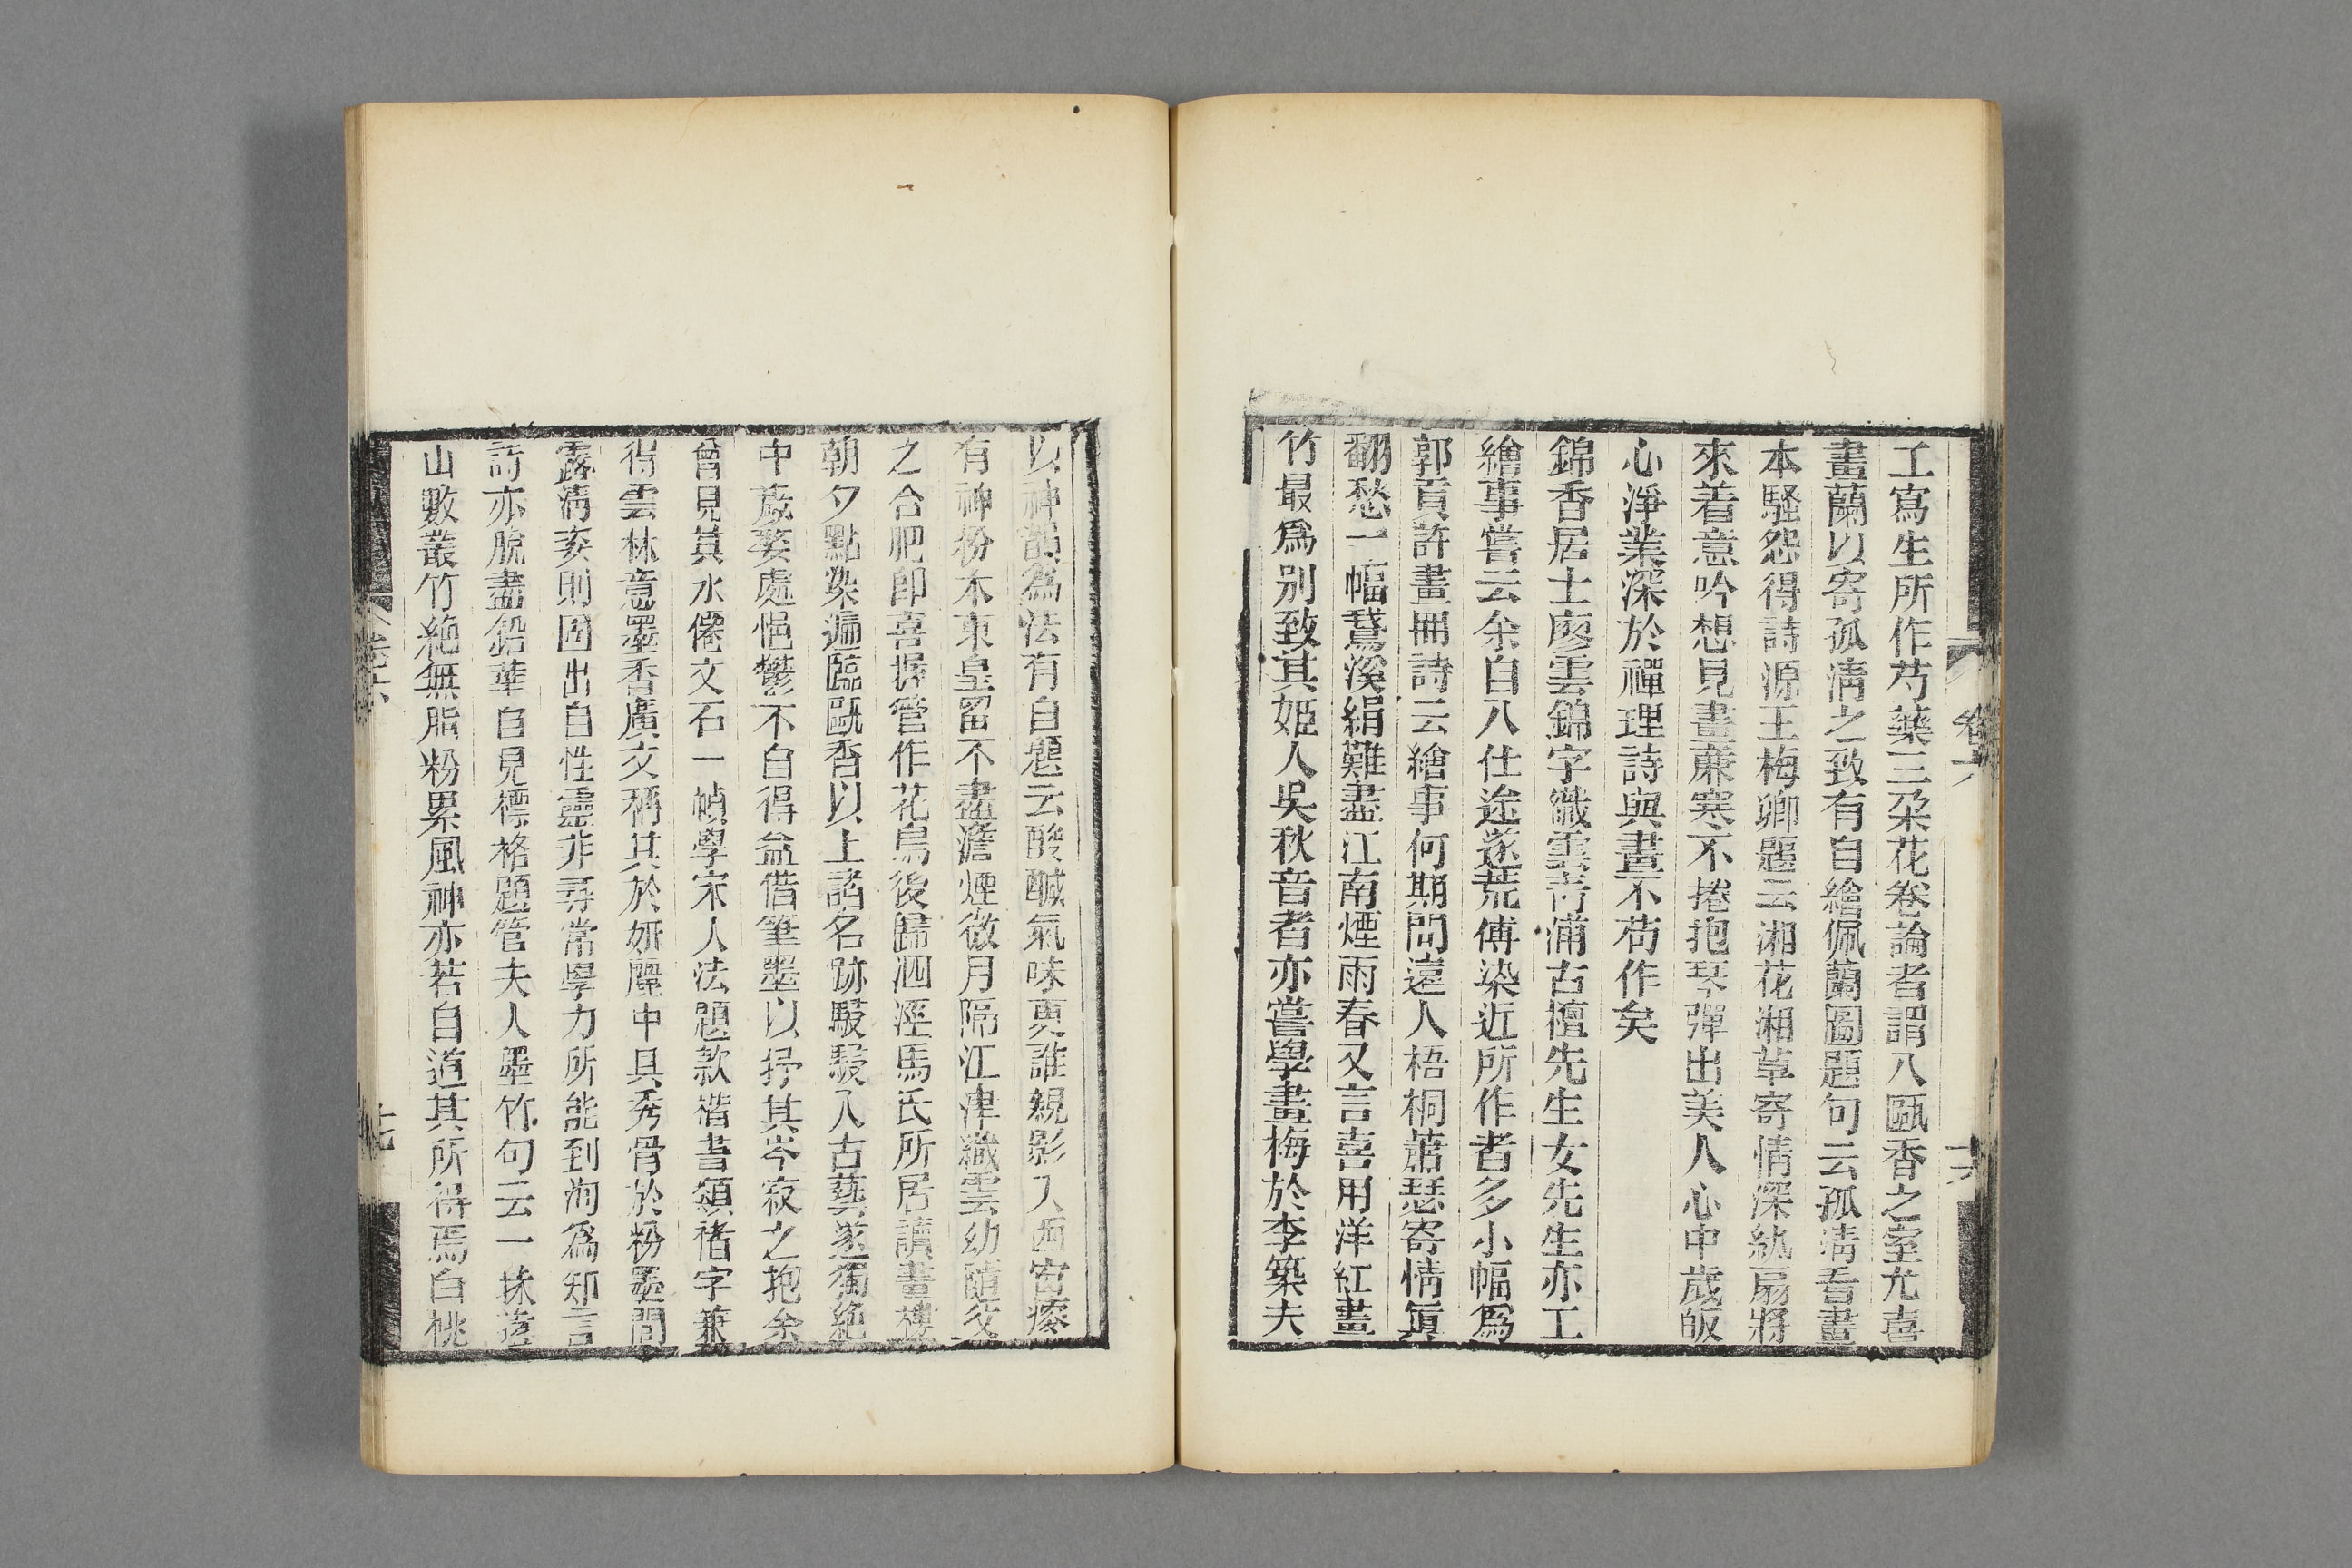 工寫生所作芍藥三朶花卷論者謂入甌香之室尤喜
畫蘭以寄孤淸之致有自繪佩蘭圖題句云孤淸吾畫
本騷怨得詩源王梅卿題云湘花湘草寄情深紈扇將
來着意吟想見畫蘼寒不捲抱琴彈出美人心中歲皈
心淨業深於禪理詩與畫不苟作矣
錦香居士廖雲錦字織雲靑浦古檀先生女先生亦工
繪事嘗云余自入仕途遂荒傅染近所作者多小幅爲
郭貢許畫冊詩云繪事何期問遠人梧桐蕭瑟寄情眞
翻愁一幅鵞溪絹難盡江南煙雨春又言喜用洋紅畫
竹最爲别致其姬人吳秋音者亦嘗學畫梅於李築夫
卷六
十六
以神韻爲法有自題云酸鹹氣味更誰親影入西窗瘦
有神粉本東皇留不盡澹煙微月隔江津織雲幼隨父
之合肥卽喜握管作花鳥後歸泗涇馬氏所居讀畫樓
朝夕點染遍臨甌香以上諸名跡駸駸入古藝遂獨絶
中歲嫠處悒鬱不自得益借筆墨以抒其岑寂之抱余
曾見其水僊文石一幀學宋人法題款楷書頗褚字兼
得雲林意墨香廣文稱其於妍麗中具秀骨於粉墨間
露淸妾則固出自性靈非尋常學力所能到洵爲知言
詩亦脫盡鉛華自見標格題管夫人墨竹句云一抹遥
山數叢竹絶無脂粉累風神亦若自道其所得焉白桃
卷六
十七